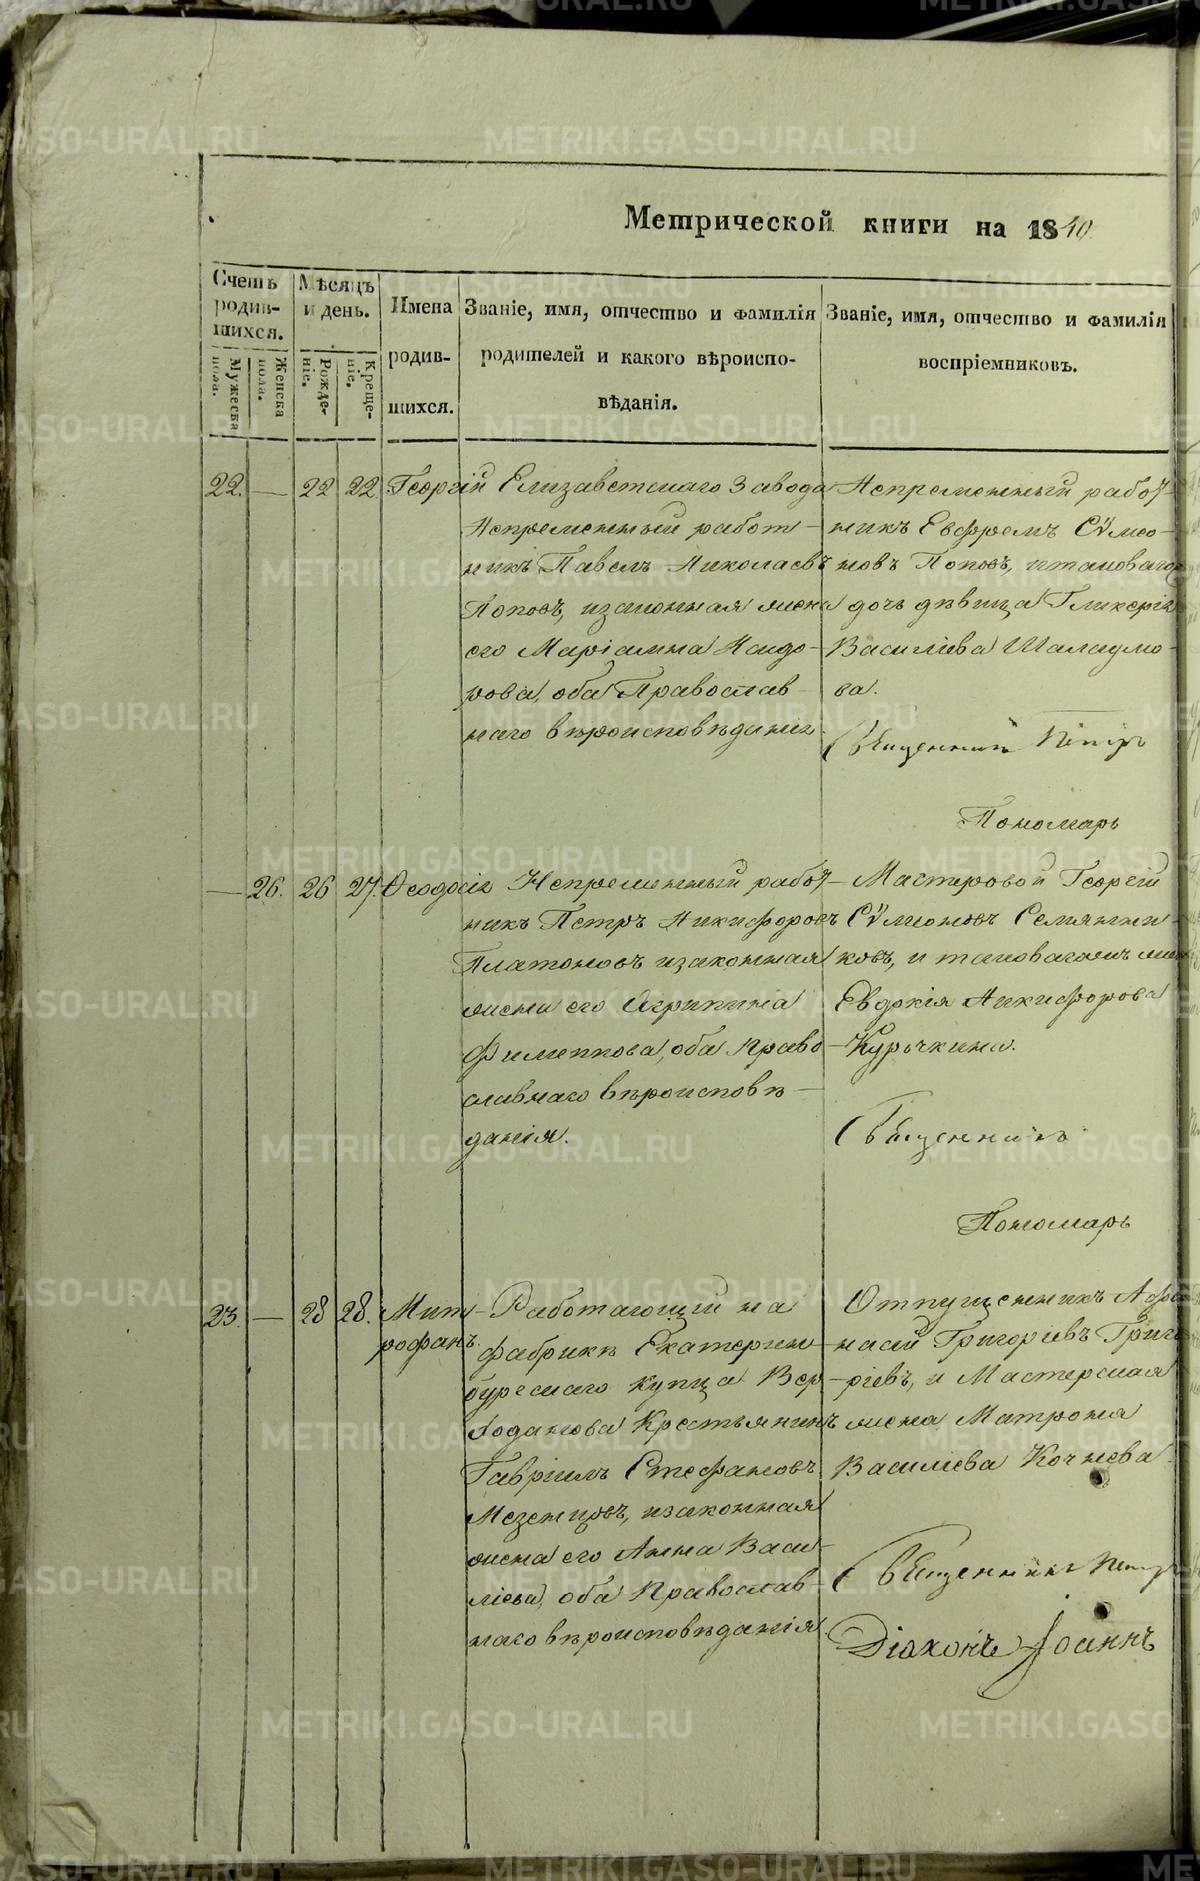 Метрической книги на 1840.
Счетъ родив-шихся.
Мѣсяцъ и день.
Имена родив-шихся.
Званіе, имя, отчество и фамилія родителей и какого вѣроиспо-вѣданія.
Званіе, имя, отчество и фамилія воспріемниковъ.
Мужеска пола.
Женска пола.
Рожде-ніе.
Креще-ніе.
22. — 22 22. Георгій
Елизаветскаго Завода
Непременный работ-
никъ Павелъ Николаевъ
Поповъ, изаконная жена
его Маріамна Исидо-
рова, оба Православ-
наго вѣроисповѣданія
Непременный работ-
никъ Евфремъ Сѵмео-
новъ Поповъ, итаковаго
дочь дѣвица Гликерія
Василіева Шалаумо-
ва.
Священникъ Петръ
Пономарь
— 26. 26 27. Ѳеодосія
Непременный работ-
никъ Петръ Никифоровъ
Платоновъ изаконная
жена его Агрипина
Филиппова, оба право-
славнаго вѣроисповѣ-
данія.
Мастеровой Георгій
Сѵмионовъ Семянни-
ковъ, и таковагожъ жена
Евдокія Никифорова
Курочкина.
Священникъ
Пономарь
23. — 28 28. Мит-
рофанъ.
Работающій на
фабрикѣ Екатерин-
бургскаго купца Вер-
ходанова Крестьянинъ
Гавріилъ Стефановъ
Мезенцовъ, изаконная
жена его Анна Васи-
ліева, оба Православ-
наго вѣроисповѣданія
Отпущенникъ Афа-
насій Григоріевъ Григо-
ріевъ, и Мастерская
жена Матрона
Василіева Кочнева.
Священникъ Петръ
Діаконъ Іоаннъ
METRIKI.GASO-URAL.RU